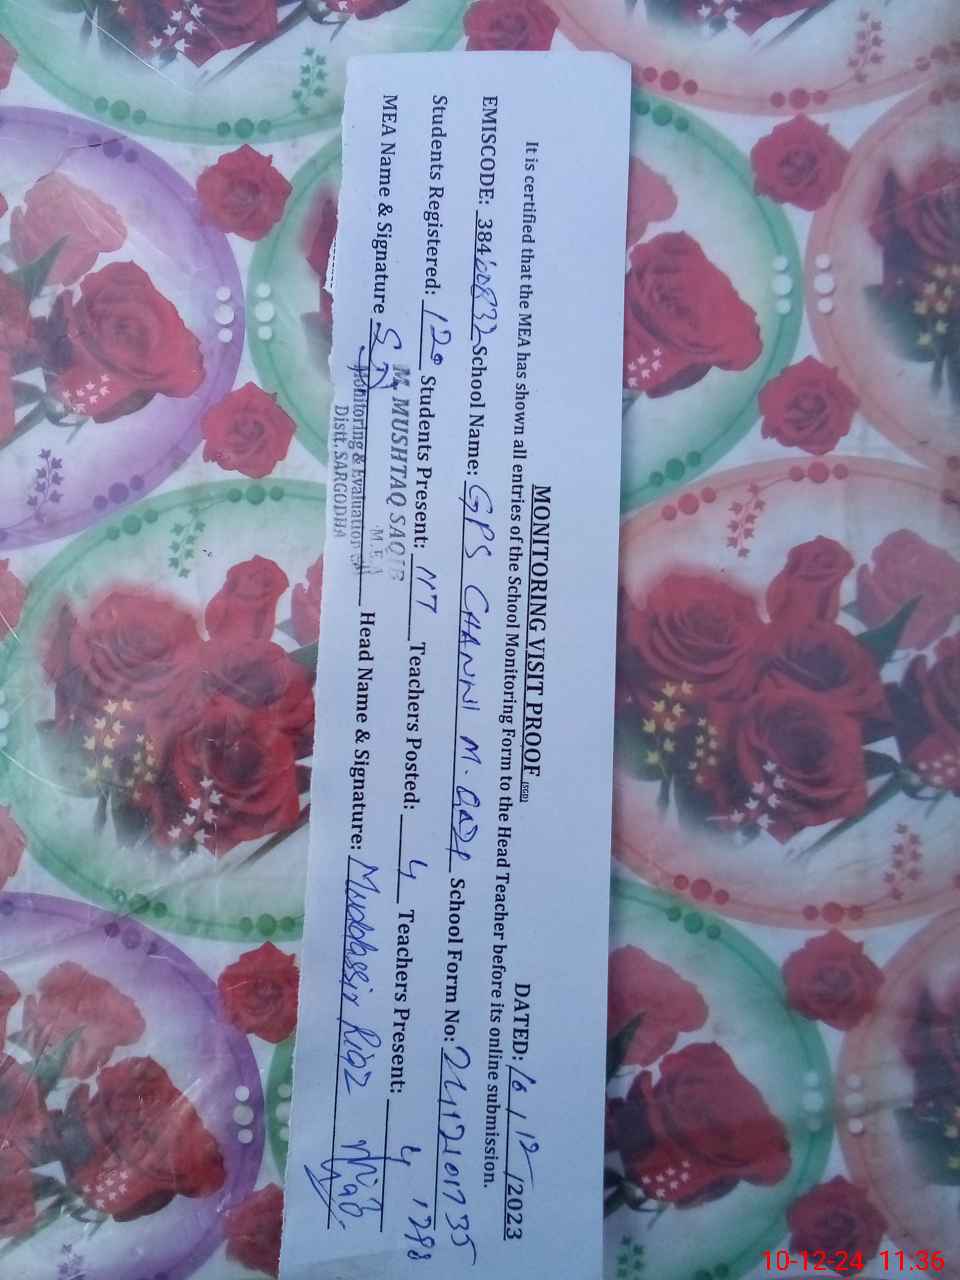 MONITORING VISIT PROOF (SGD)
DATED: 10/12/2023
It is certified that the MEA has shown all entries of the School Monitoring Form to the Head Teacher before its online submission.
EMISCODE: 38460832 School Name: GPS CHANNI M. School Form No:
Students Registered: 120 Students Present: Teachers Posted: 4 Teachers Present: 4
MEA Name & Signature Head Name & Signature: Muddassir Riaz
M. MUSHTAQ SAQIB
(M.E.A)
Monitoring & Evaluation Cell
Distt. SARGODHA
10-12-24 11:36